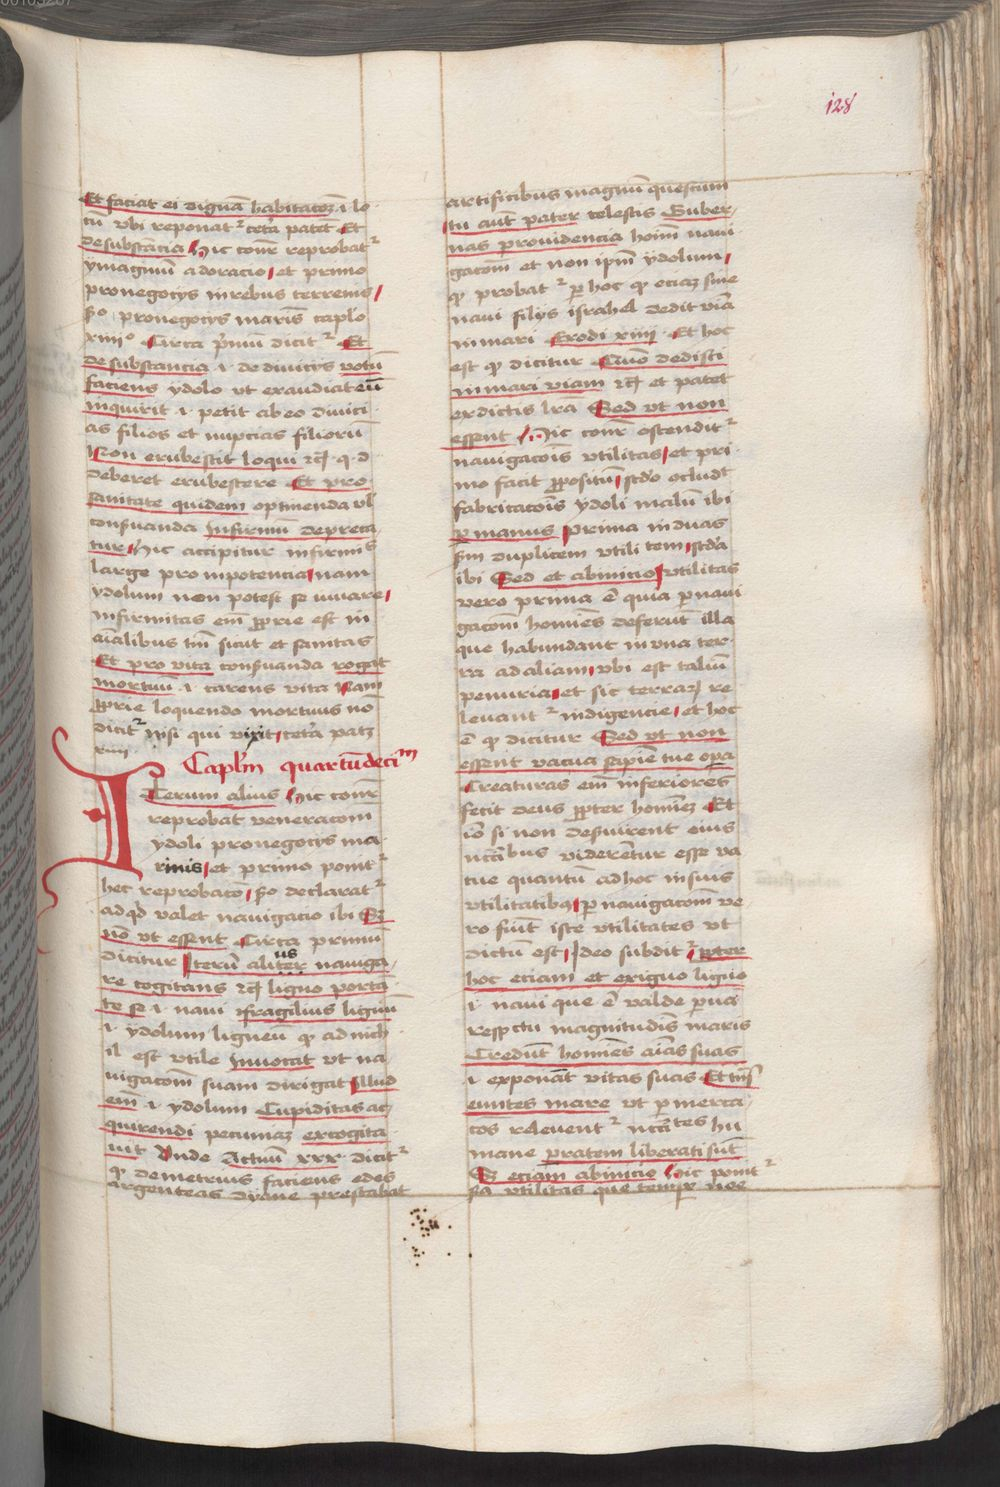 128
Et faciat ei dignã habitacõꝫ .i. lo
cũ vbi reponatᷣ cetera patẽt Et
de substancia Hic contᷣ reprobatᷣ
ymaginũ adoracio et primo
pro negocijs in rebus terrenis
sᵒ pro negocijs maris caplo
xiiiiᵒ Circa pᷣmũ dicitᷣ Et
de substancia .i. de diuicijs votũ
faciens ydolo vt exaudiat eũ
inquirit .i. petit ab eo diuici
as filios et nupcias filiorũ
Non erubescit loqui ⁊cͣ q. d
deberet erubescere Et pro
sanitate quidem optinenda vl
conseruanda Infirmũ depreca
tur Hic accipitur infirmꝰ
large pro inpotencia nam
ydolum non potest se iuuare
infirmitas em̃ ꝓprie est in
aĩalibus tm̃ sicut et sanitas
Et pro vita conseruanda rogat
mortuũ .i. carens vita Nam
ꝓprie loquendo mortuus nõ
dicitᷣ nisi qui vixit cetera patꝫ
xiiii
Caplm quartũdecim
ITerum alius Hic contᷣ
reprobat veneracõm
ydoli pro negocijs ma
rinis et primo ponitᷣ
hec reprobacõ sᵒ declaratᷣ
ad qd valet nauigacio ibi Sꝫ
nõ vt essent Circa primũ
dicitur Iterũ aliter nauiga
us
re cogitans ⁊cͣ ligno portã
te se .i. naui fragilius lignũ
.i. ydolum ligneũ qꝫ ad nich
il est vtile Inuocat vt na
uigacõm suam dirigat Illud
em̃ .i. ydolum Cupiditas ac
quirendi pecuniaꝫ excogita
uit Vnde Actuũ xxx dicitᷣ
qꝫ demetrius faciens edes
argenteas dyane prestabat
artificibus magnũ questum
tu aut̃ pater celestis Guber
nas prouidencia hoĩm naui
gacõm et non ip̃m ydolum
qꝫ probatᷣ ꝑ hoc qꝫ eciaꝫ sine
naui filijs israhel dedit viã
in mari Exodi xiiii Et hoc
est qꝫ dicitur Qm̃ dedisti
in mari viam ⁊cͣ et patet
ex dictis lrã Sed vt non
essent Hic contᷣ ostenditᷣ
nauigacõis vtilitas et pri
mo facit ꝓpositũ scdo ocludt
fabricacõis ydoli malũ ibi
ꝑ manus Prima in duas
sm duplicem vtilitem scda
ibi Sed et ab inicio vtilitas
vero prima ẽ quia ꝑ naui
gacõm homĩes deferunt illa
que habundant in vna ter
ra ad aliam vbi est taliũ
penuria et sic terraꝝ re
leuantᷣ indigencie et hoc
ẽ qꝫ dicitur Sed vt non
essent vacua sapiẽ tue opa
Creaturas em̃ inferiores
fecit deus ꝓpter homĩeꝫ Et
iõ si non deseruirent eius
nccĩbus viderẽtur esse va
cue quantũ ad hoc in suis
vtilitatibꝫ ꝑ nauigacõm ve
ro fiũt iste vtilitates vt
dictũ est Ideo subditᷣ ꝓpter
hoc eciam et exiguo ligno
.i. naui que ẽ valde ꝑua
respectu magnitudĩs maris
Credũt homĩes aĩas suas
.i. exponãt vitas suas Et trñs
euntes mare vt ꝑ merca
cõs releuentᷣ nccĩtes hu
mane ꝑ ratem liberati sũt
Sꝫ eciam ab inicio Hic ponitᷣ
sᵃ vtilitas que tempꝫ noe